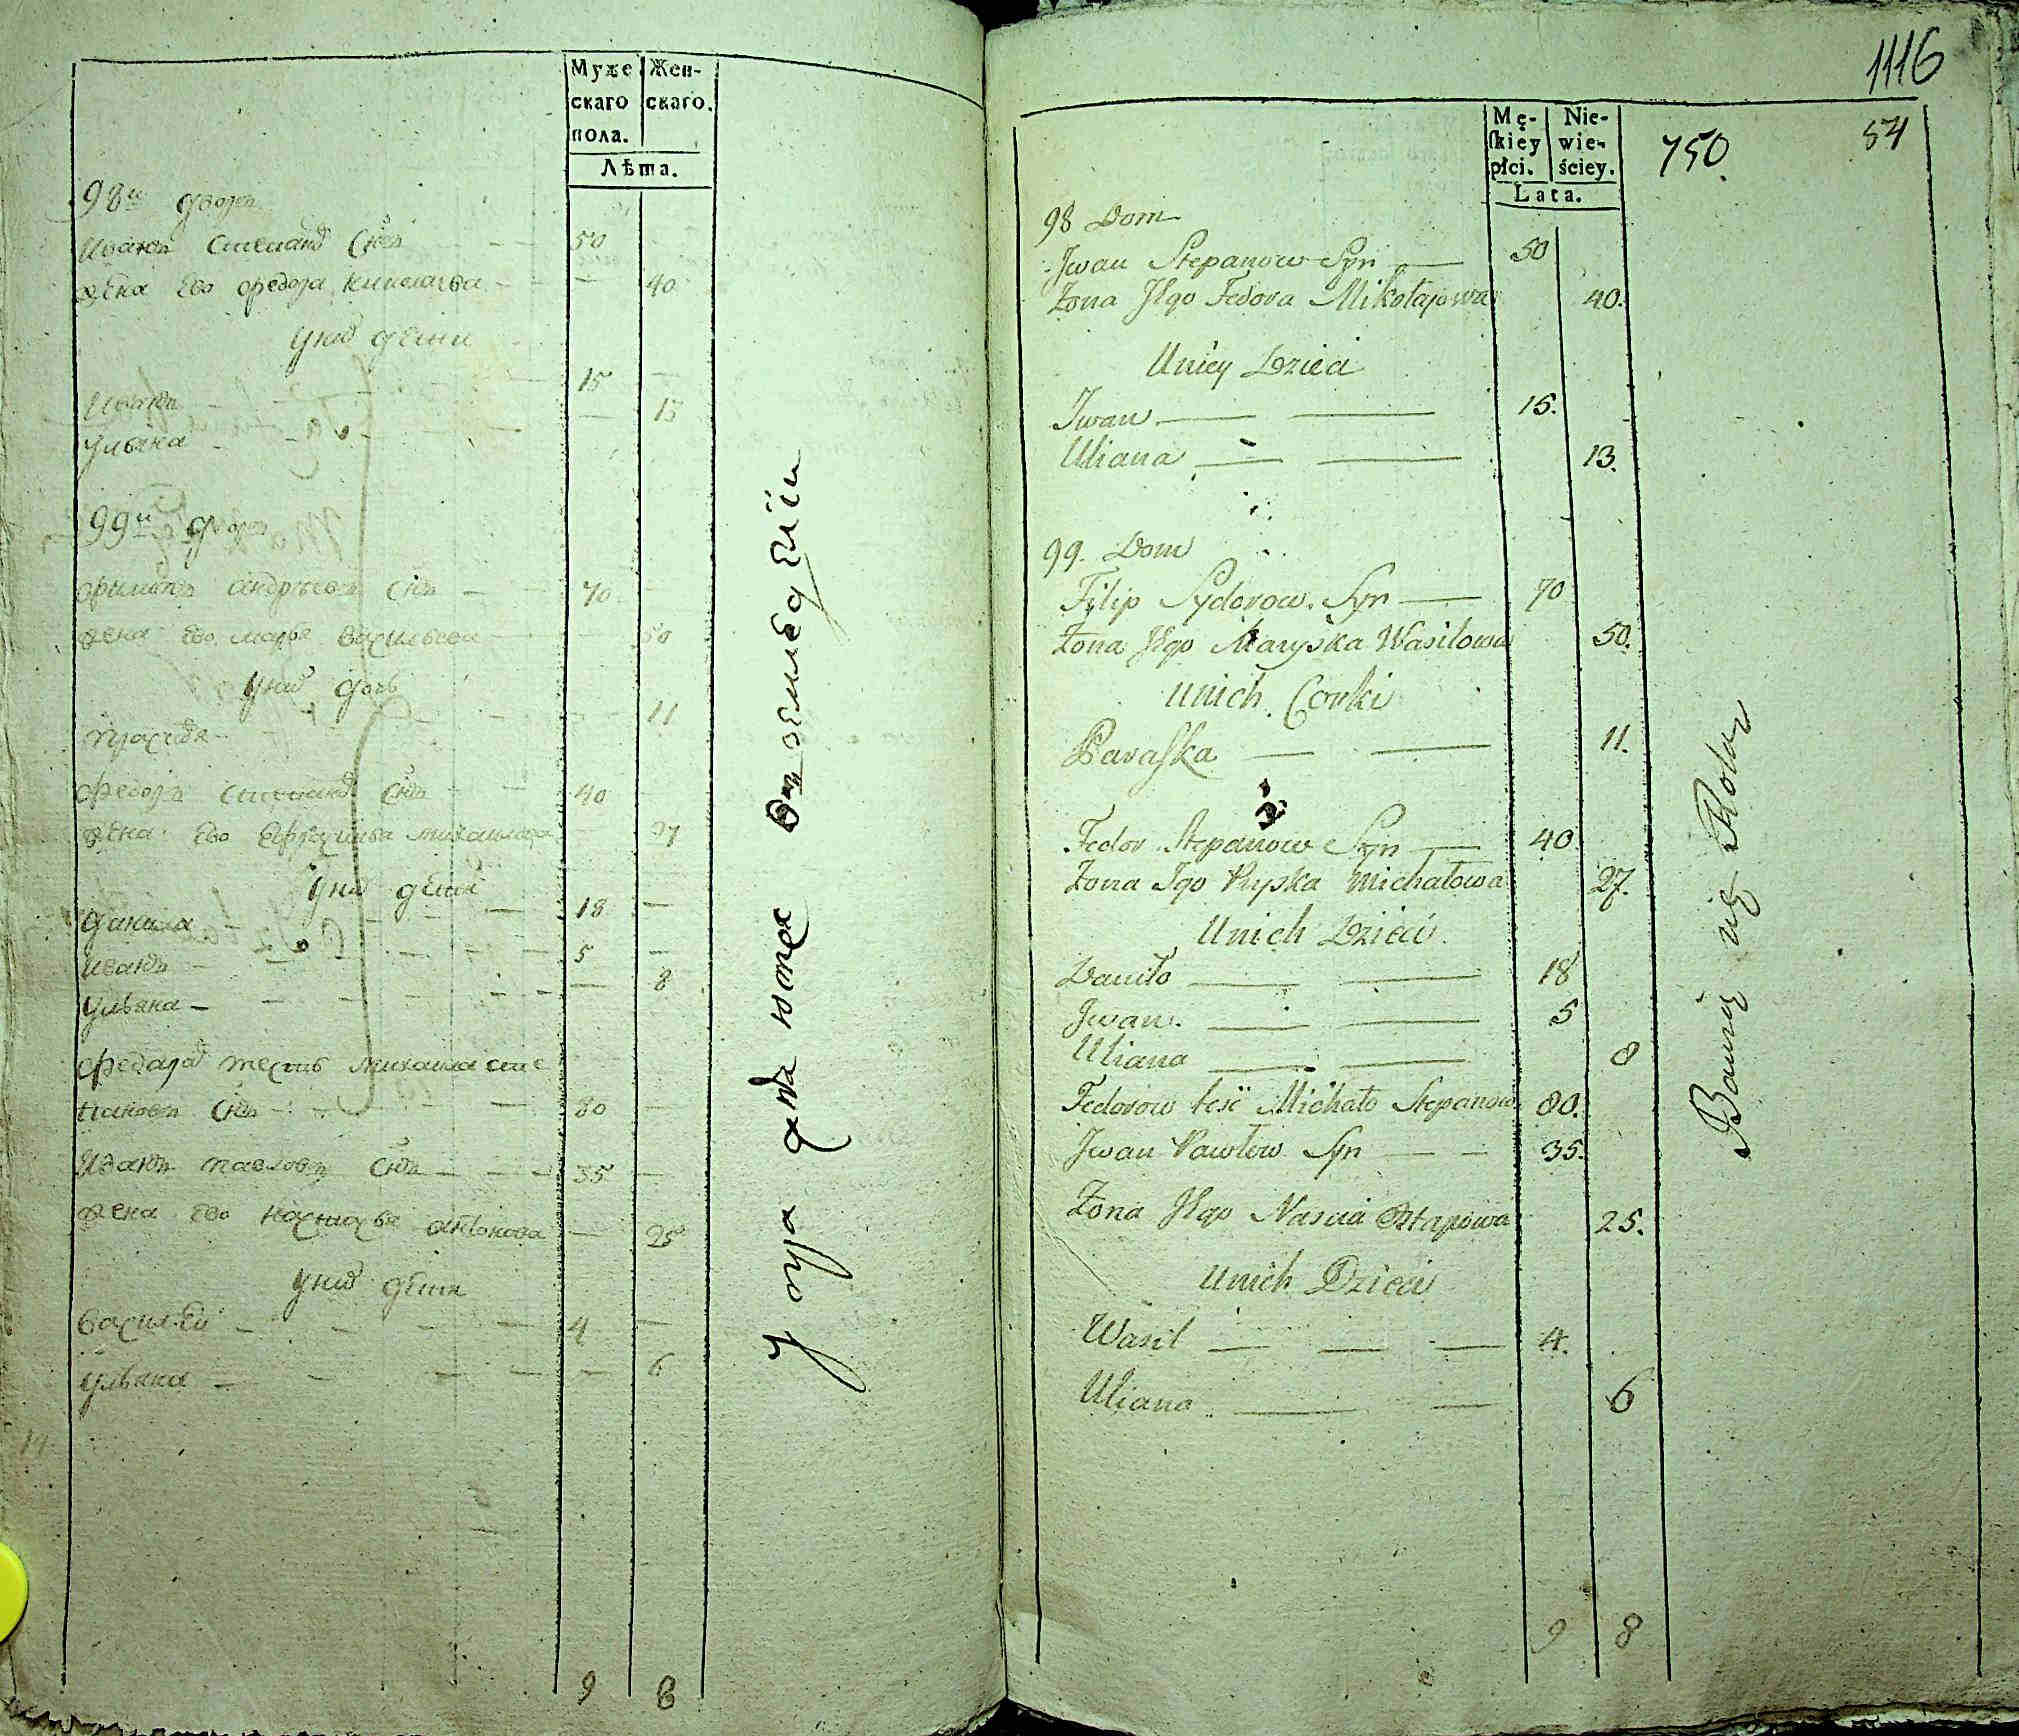 Муже
скаго
пола.
Жен-
скаго.
Лѣта.
98й дворъ
Иванъ Степановъ Снъ 50
Жена Ево Федора Николаева 40
У них дети
Иванъ 15
Ульяна 13
99й дворъ
Филипъ Снъ 70
Жена Ево Марья Васильева 50
У них дочь
11
Федоръ Степановъ Снъ 40
Жена Ево Михаилова 27
У них дети
Данила 18
Иванъ 5
Ульяна 8
Федоров тесть Михаила Сте
пановъ Снъ 80
Иванъ Павловъ Снъ 35
Жена Ево Настасья Антонова 25
У них дети
Василей 4
Ульяна 6
9 8
1116
Mę-
ſkiey
płci.
Nie-
wie-
ściey.
Lata.
750.
54
98 Dom
Jwan Stepanow Syn 50
Żona Jego Fedora Mikołajowa 40.
Unich Dzieci
Jwan 15.
Uliana 13.
99. Dom
Filip Sydorow. Syn 70
Żona Jego Maryska Wasilowa 50.
Unich Corki
Paraſka 11.
Fedor Stepanow Syn 40
Żona Jgo Pryska Michałowa 27.
Unich Dzieci
Daniło 18
Jwan. 5
Uliana 8
Fedorow teść Michało Stepanow 80.
Jwan Pawłow Syn 35.
Żona Jego Nascia 25.
Unich Dzieci
Wasil 4.
Uliana 6
Bawią się Rolą
9 8